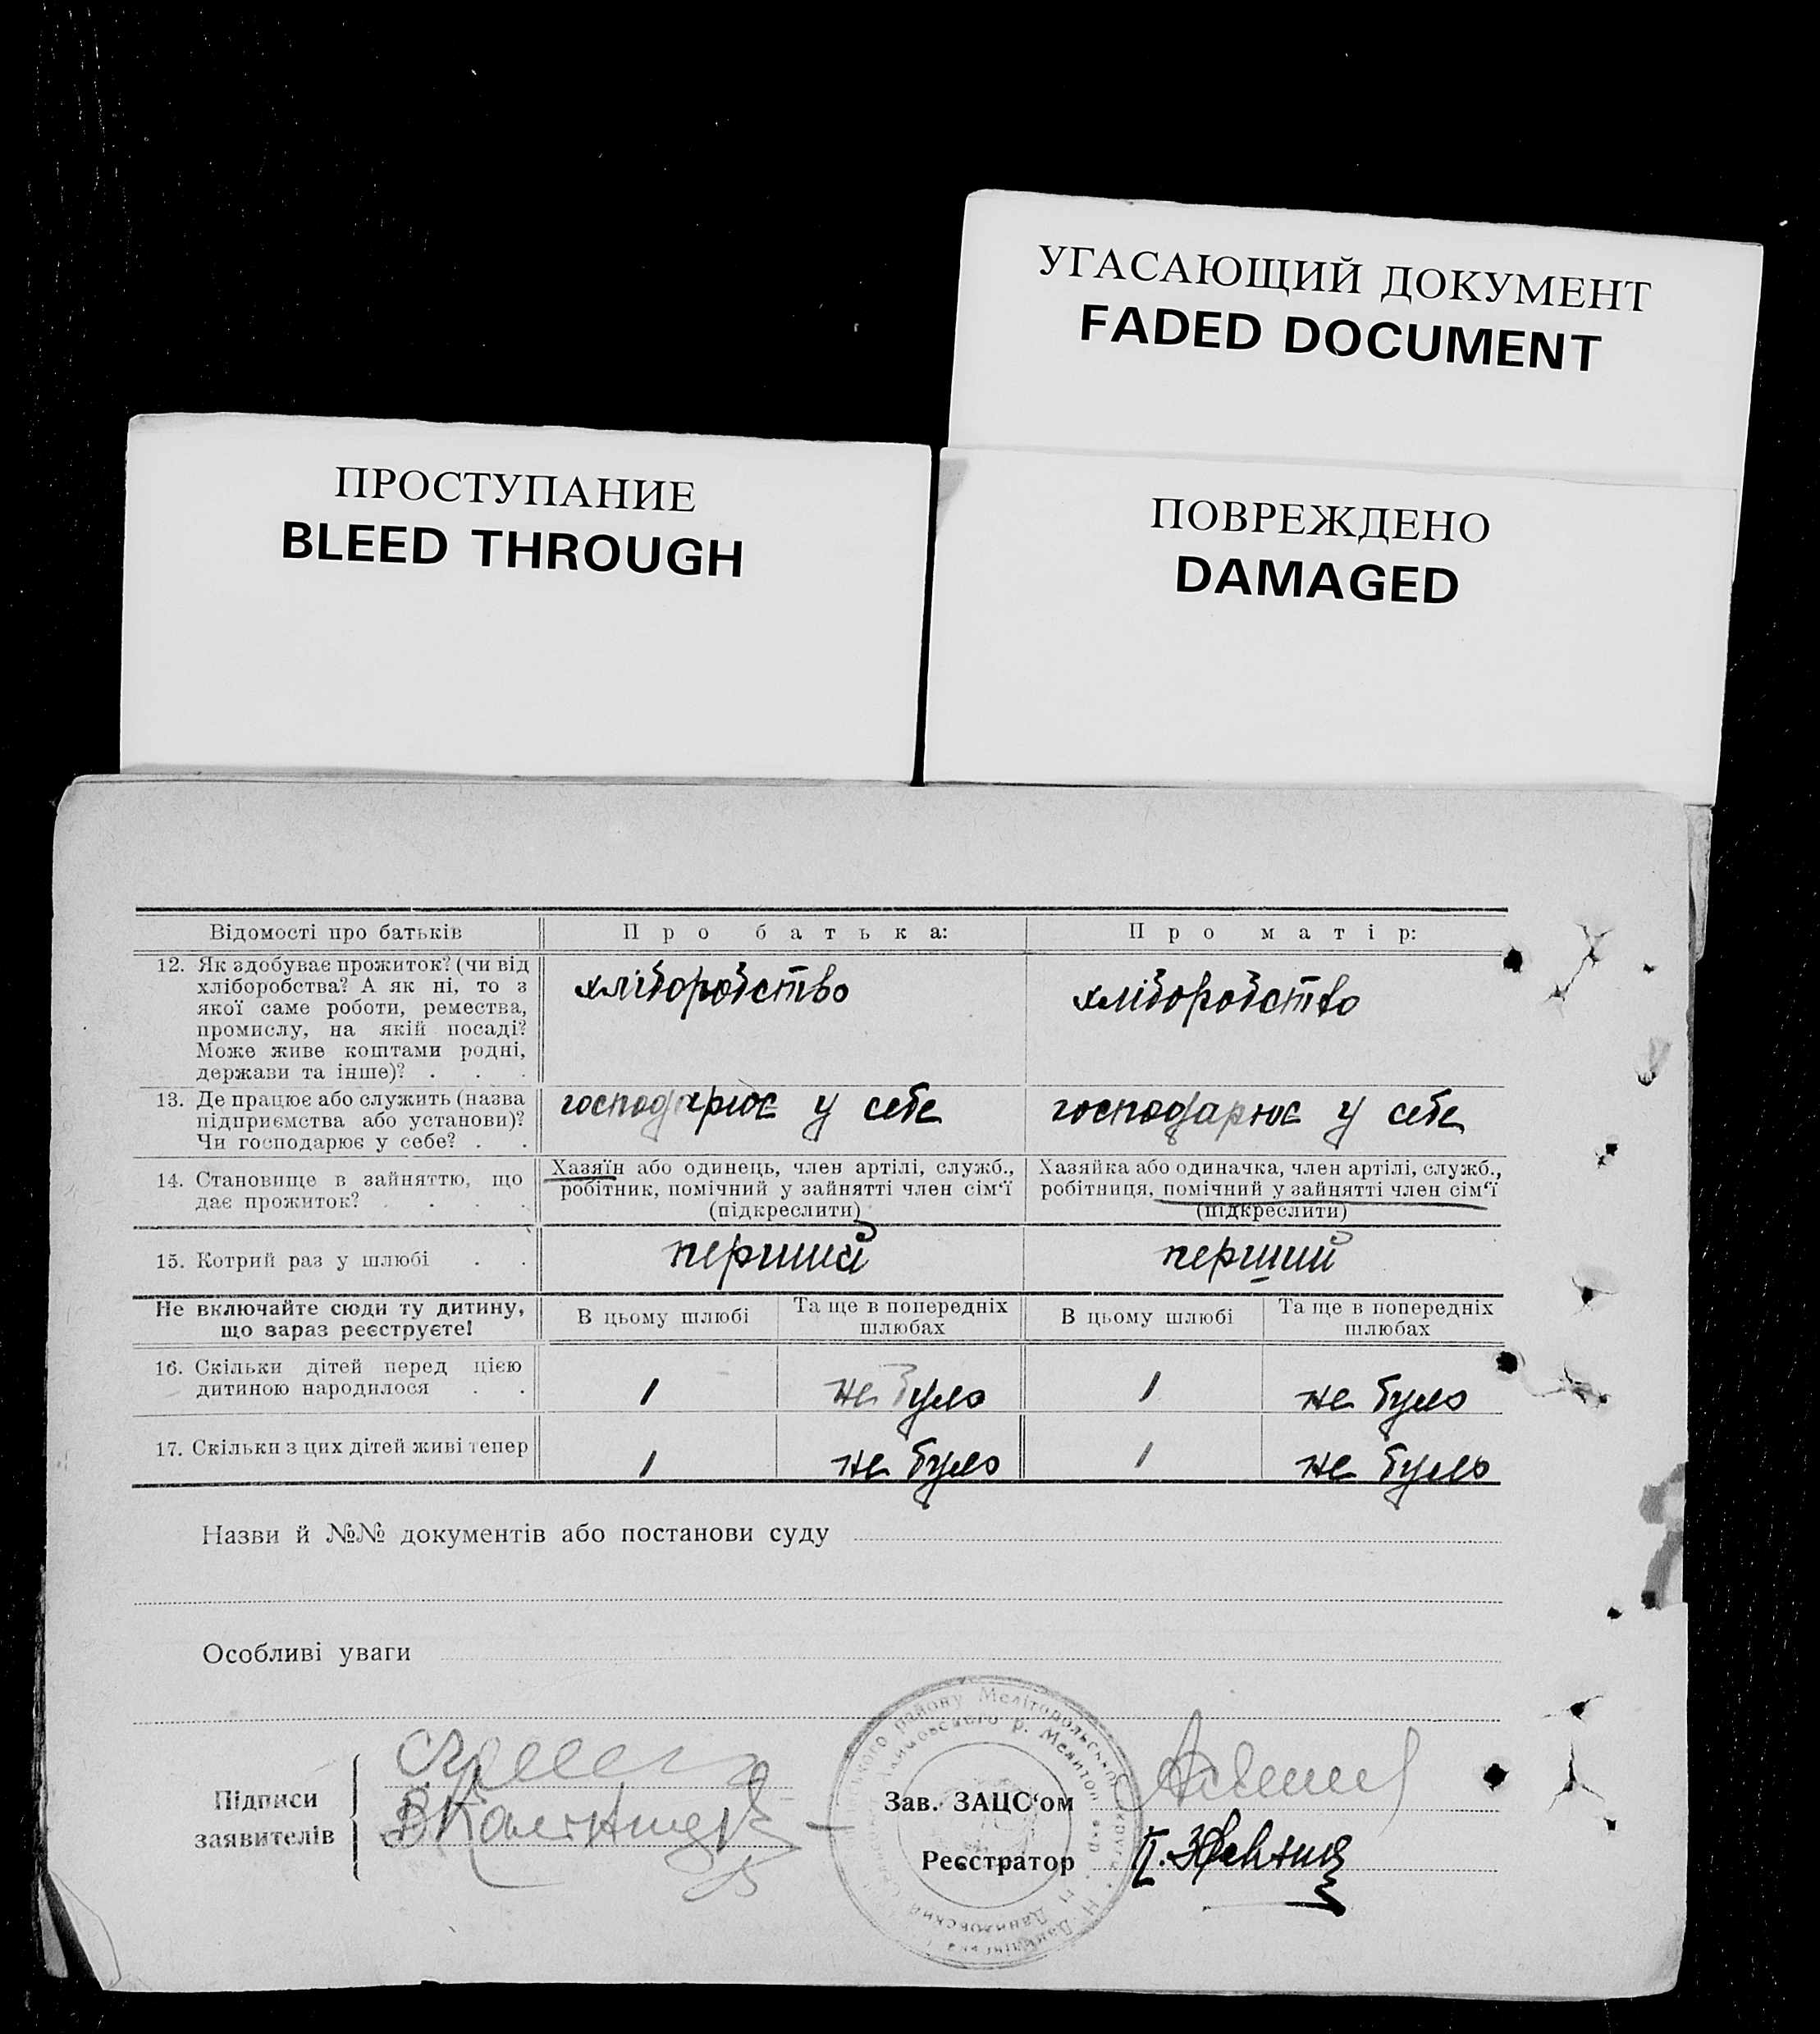 УГАСАЮЩИЙ ДОКУМЕНТ
FADED DOCUMENT
ПРОСТУПАНИЕ
BLEED THROUGH
ПОВРЕЖДЕНО
DAMAGED
Відомості про батьків
Про батька:
Про матір:
12. Як здобуває прожиток? (чи від
хліборобства? А як ні, то з
якої саме роботи, ремества,
промислу, на якій посаді?
Може живе коштами родні,
держави та інше)? . . .
хліборобство
хліборобство
13. Де працює або служить (назва
підприємства або установи)?
Чи господарює у себе? . .
господарює у себе
господарює у себе
14. Становище в зайняттю, що
дає прожиток? . . . .
Хазяїн або одинець, член артілі, служб.,
робітник, помічний у зайнятті член сім‘ї
(підкреслити)
Хазяйка або одиначка, член артілі, служб.,
робітниця, помічний у зайнятті член сім‘ї
(підкреслити)
15. Котрий раз у шлюбі . .
перший
перший
Не включайте сюди ту дитину,
що зараз реєструєте!
В цьому шлюбі
Та ще в попередніх
шлюбах
В цьому шлюбі
Та ще в попередніх
шлюбах
16. Скільки дітей перед цією
дитиною народилося . .
1
не було
1
не було
17. Скільки з цих дітей живі тепер
1
не було
1
не було
Назви й №№ документів або постанови суду
Особливі уваги
Підписи
заявителів
Зав. ЗАЦС‘ом
Реєстратор
району Мелітопольської округи